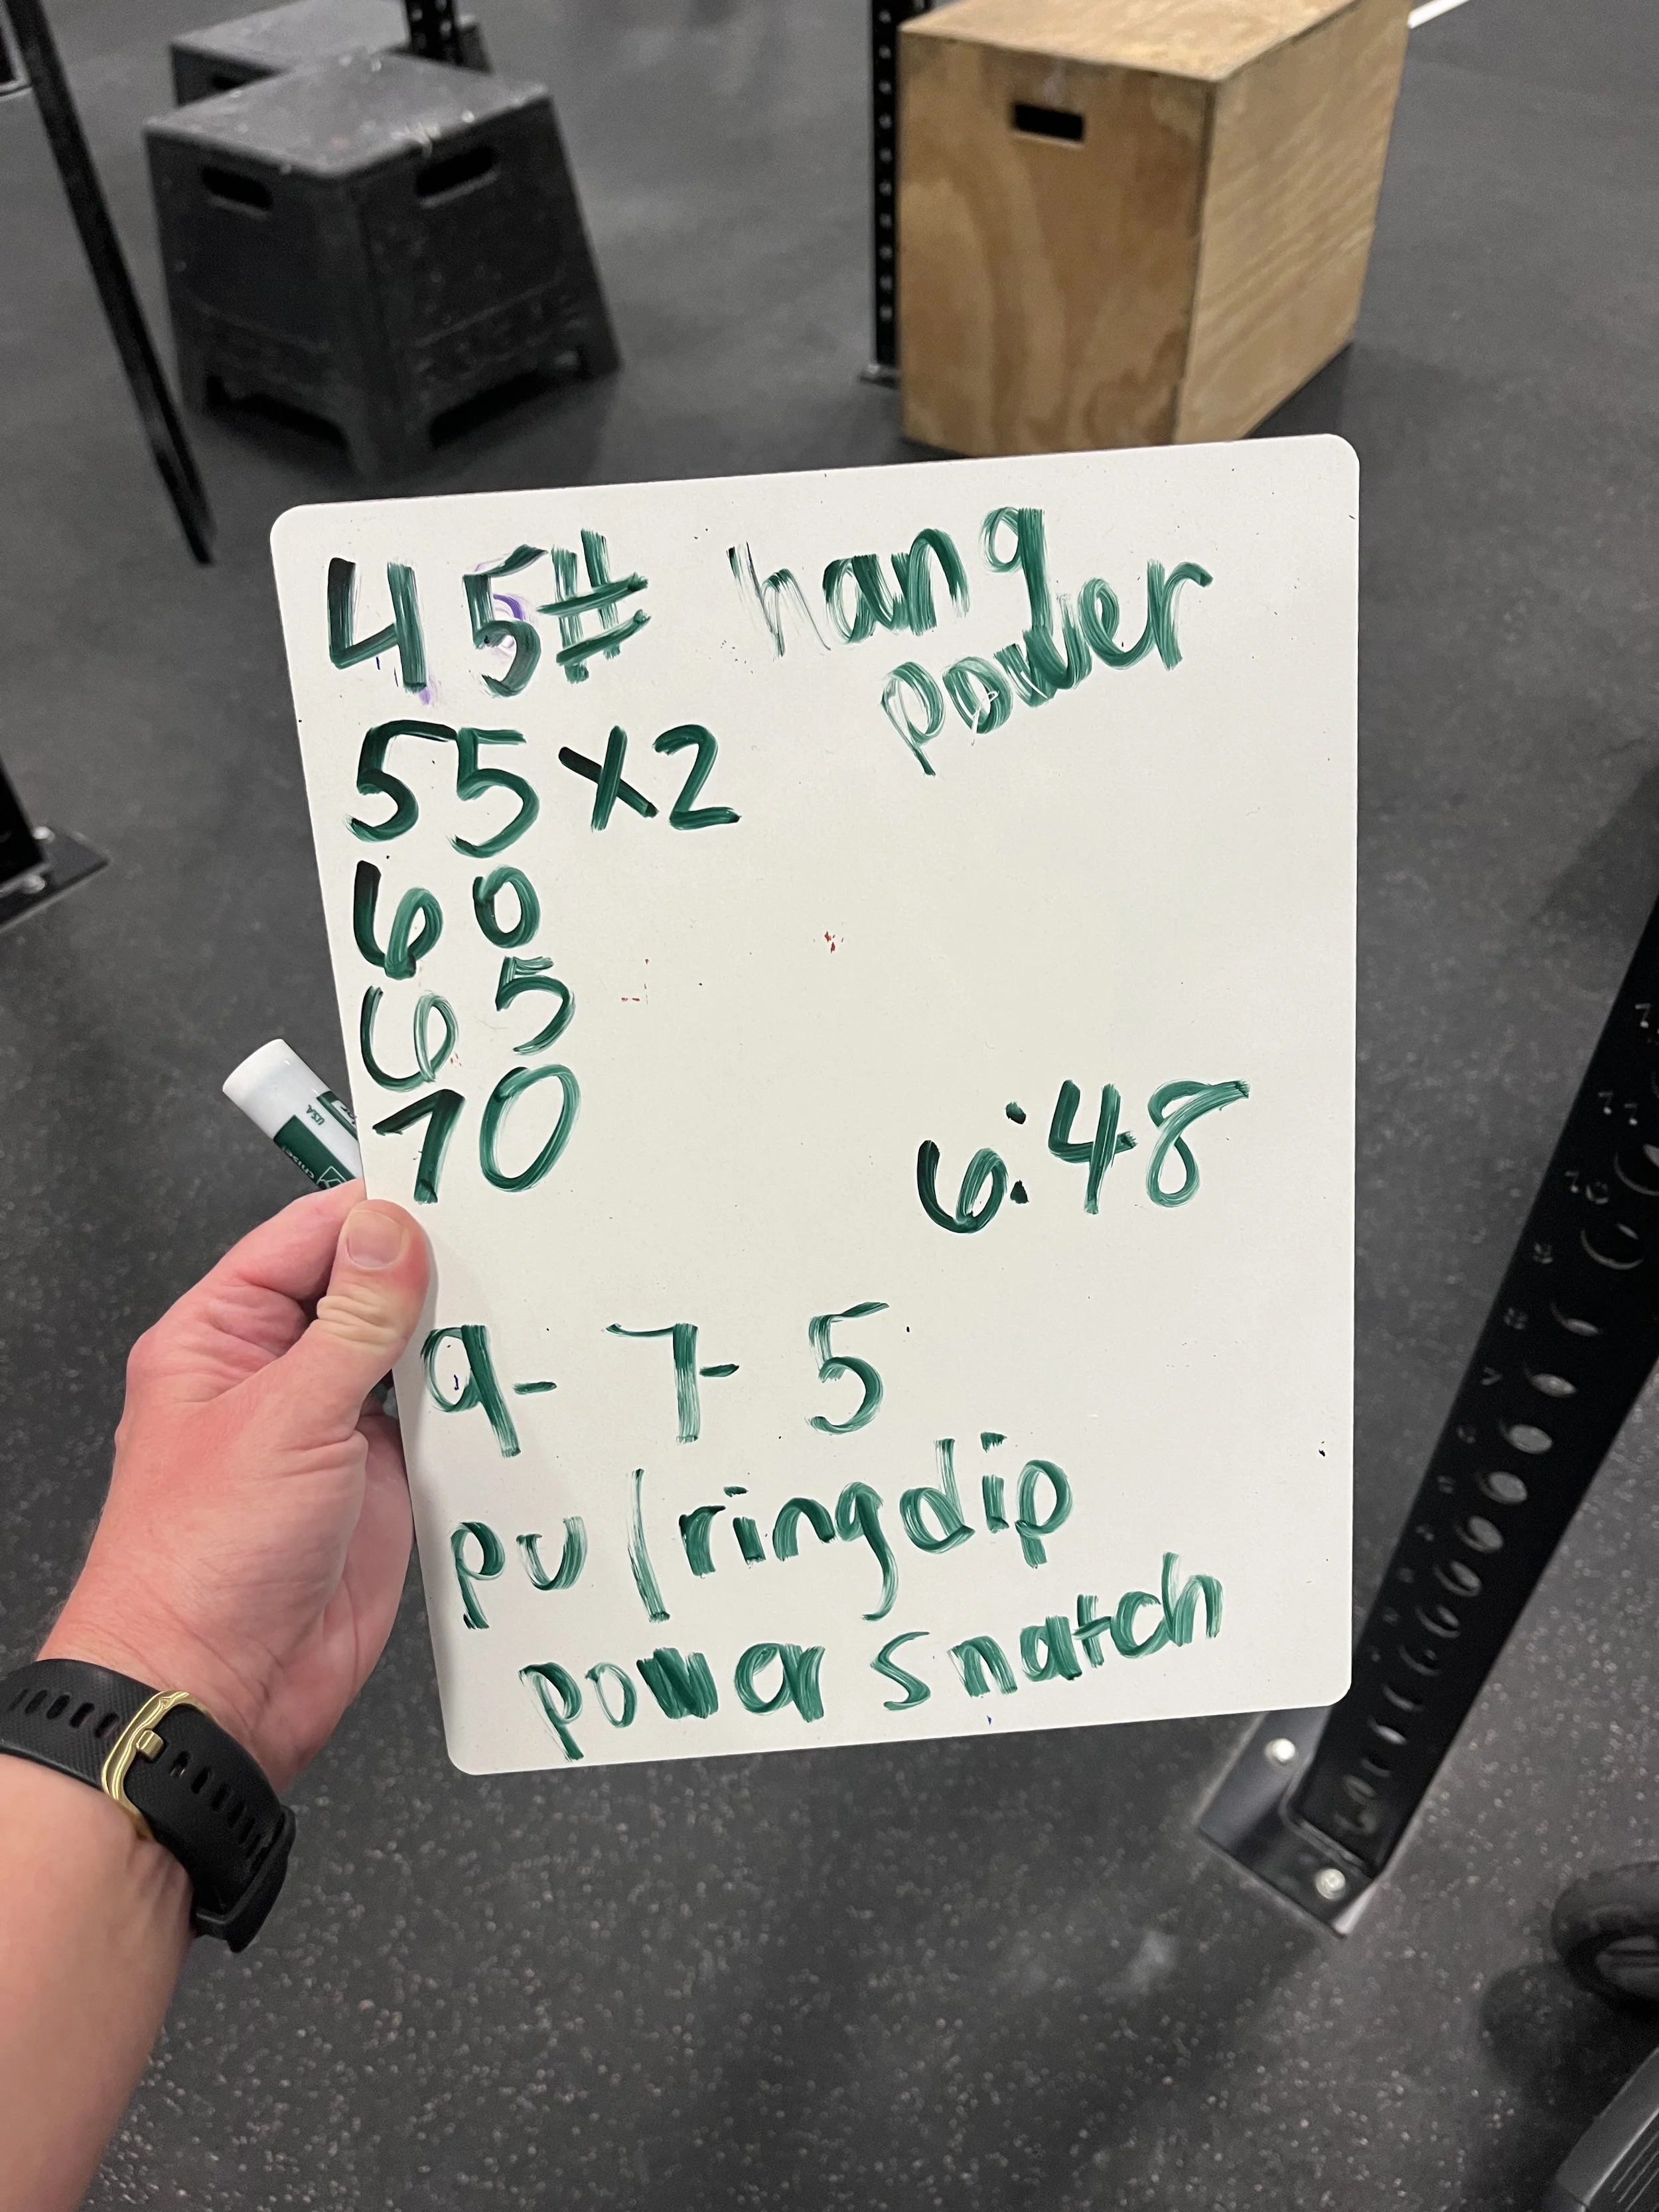 45# hang
power
55x2
60
65
70
6:48
9-7-5
pu/ringdip
power snatch
USA